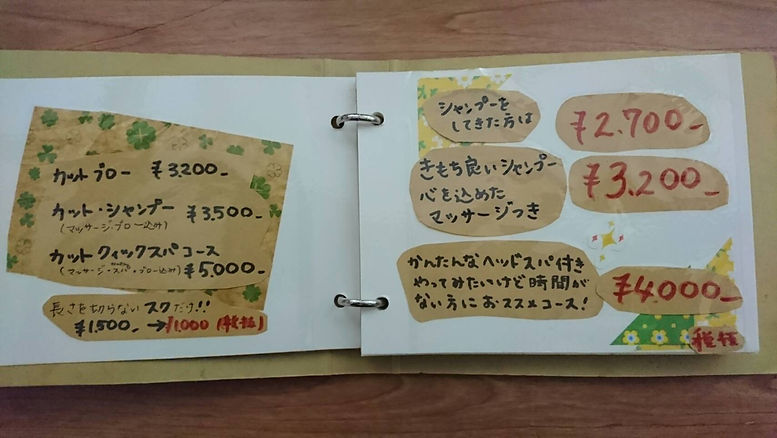 カットブロー ¥3,200-
カット・シャンプー ¥3,500-
(マッサージ・ブロー込み)
カットクィックスパコース
(マッサージ・スパ・ブロー込み) ¥5,000-
長さを切らない スクだけ!!
¥1,500- → ¥1,000 (税抜)
シャンプーを
してきた方は
¥2.700-
きもち良いシャンプー
心を込めた
マッサージつき
¥3.200-
かんたんなヘッドスパ付き
やってみたいけど時間が
ない方におススメコース!
¥4.000-
税抜